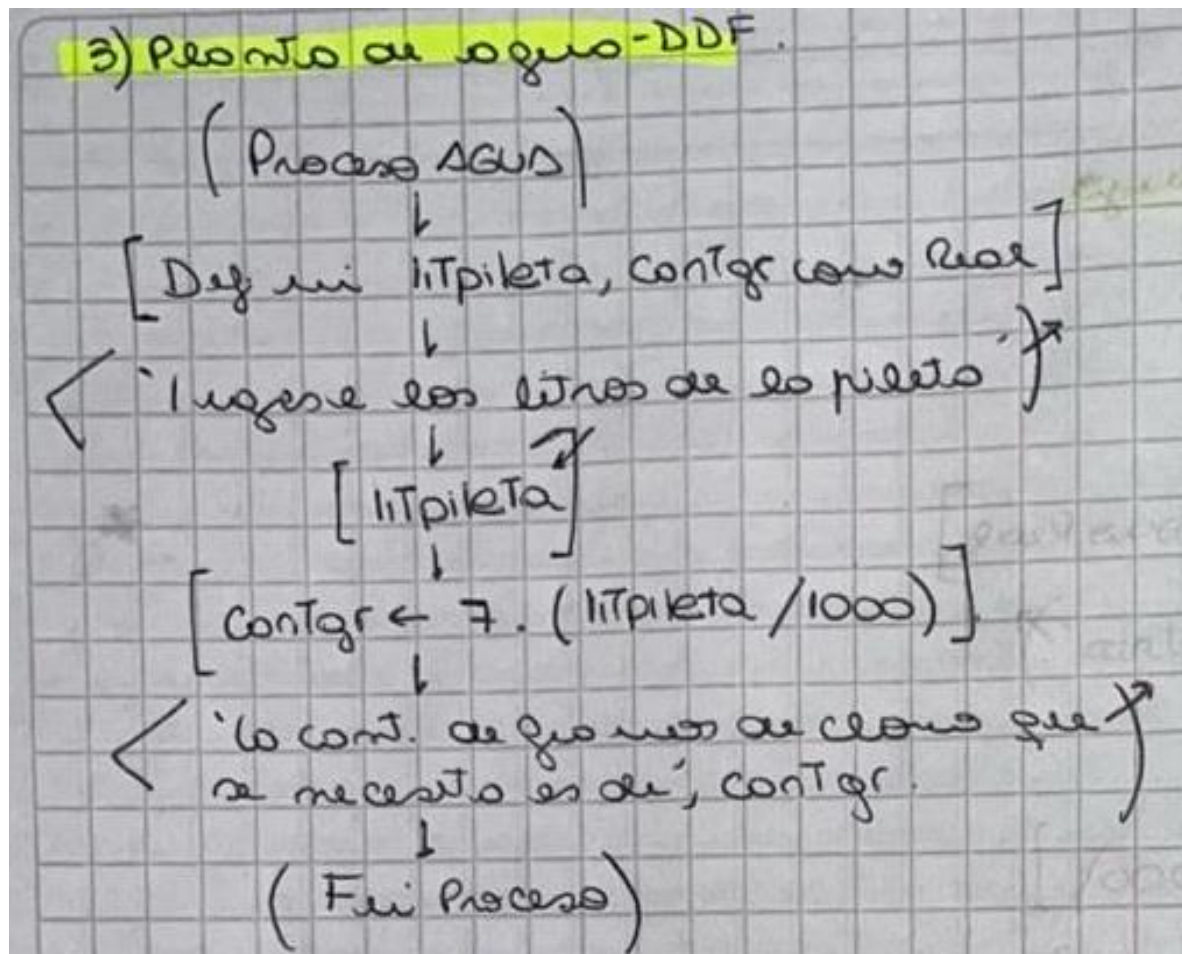 3) Planta de agua-DDF.
(Proceso AGUA)
[Definir litpileta, cantgr como Real]
'Ingrese los litros de la pileta'
[litpileta]
[cantgr ← 7. (litpileta /1000)]
'La cant. de gramos de cloro que
se necesita es de', cantgr.
(Fin Proceso)